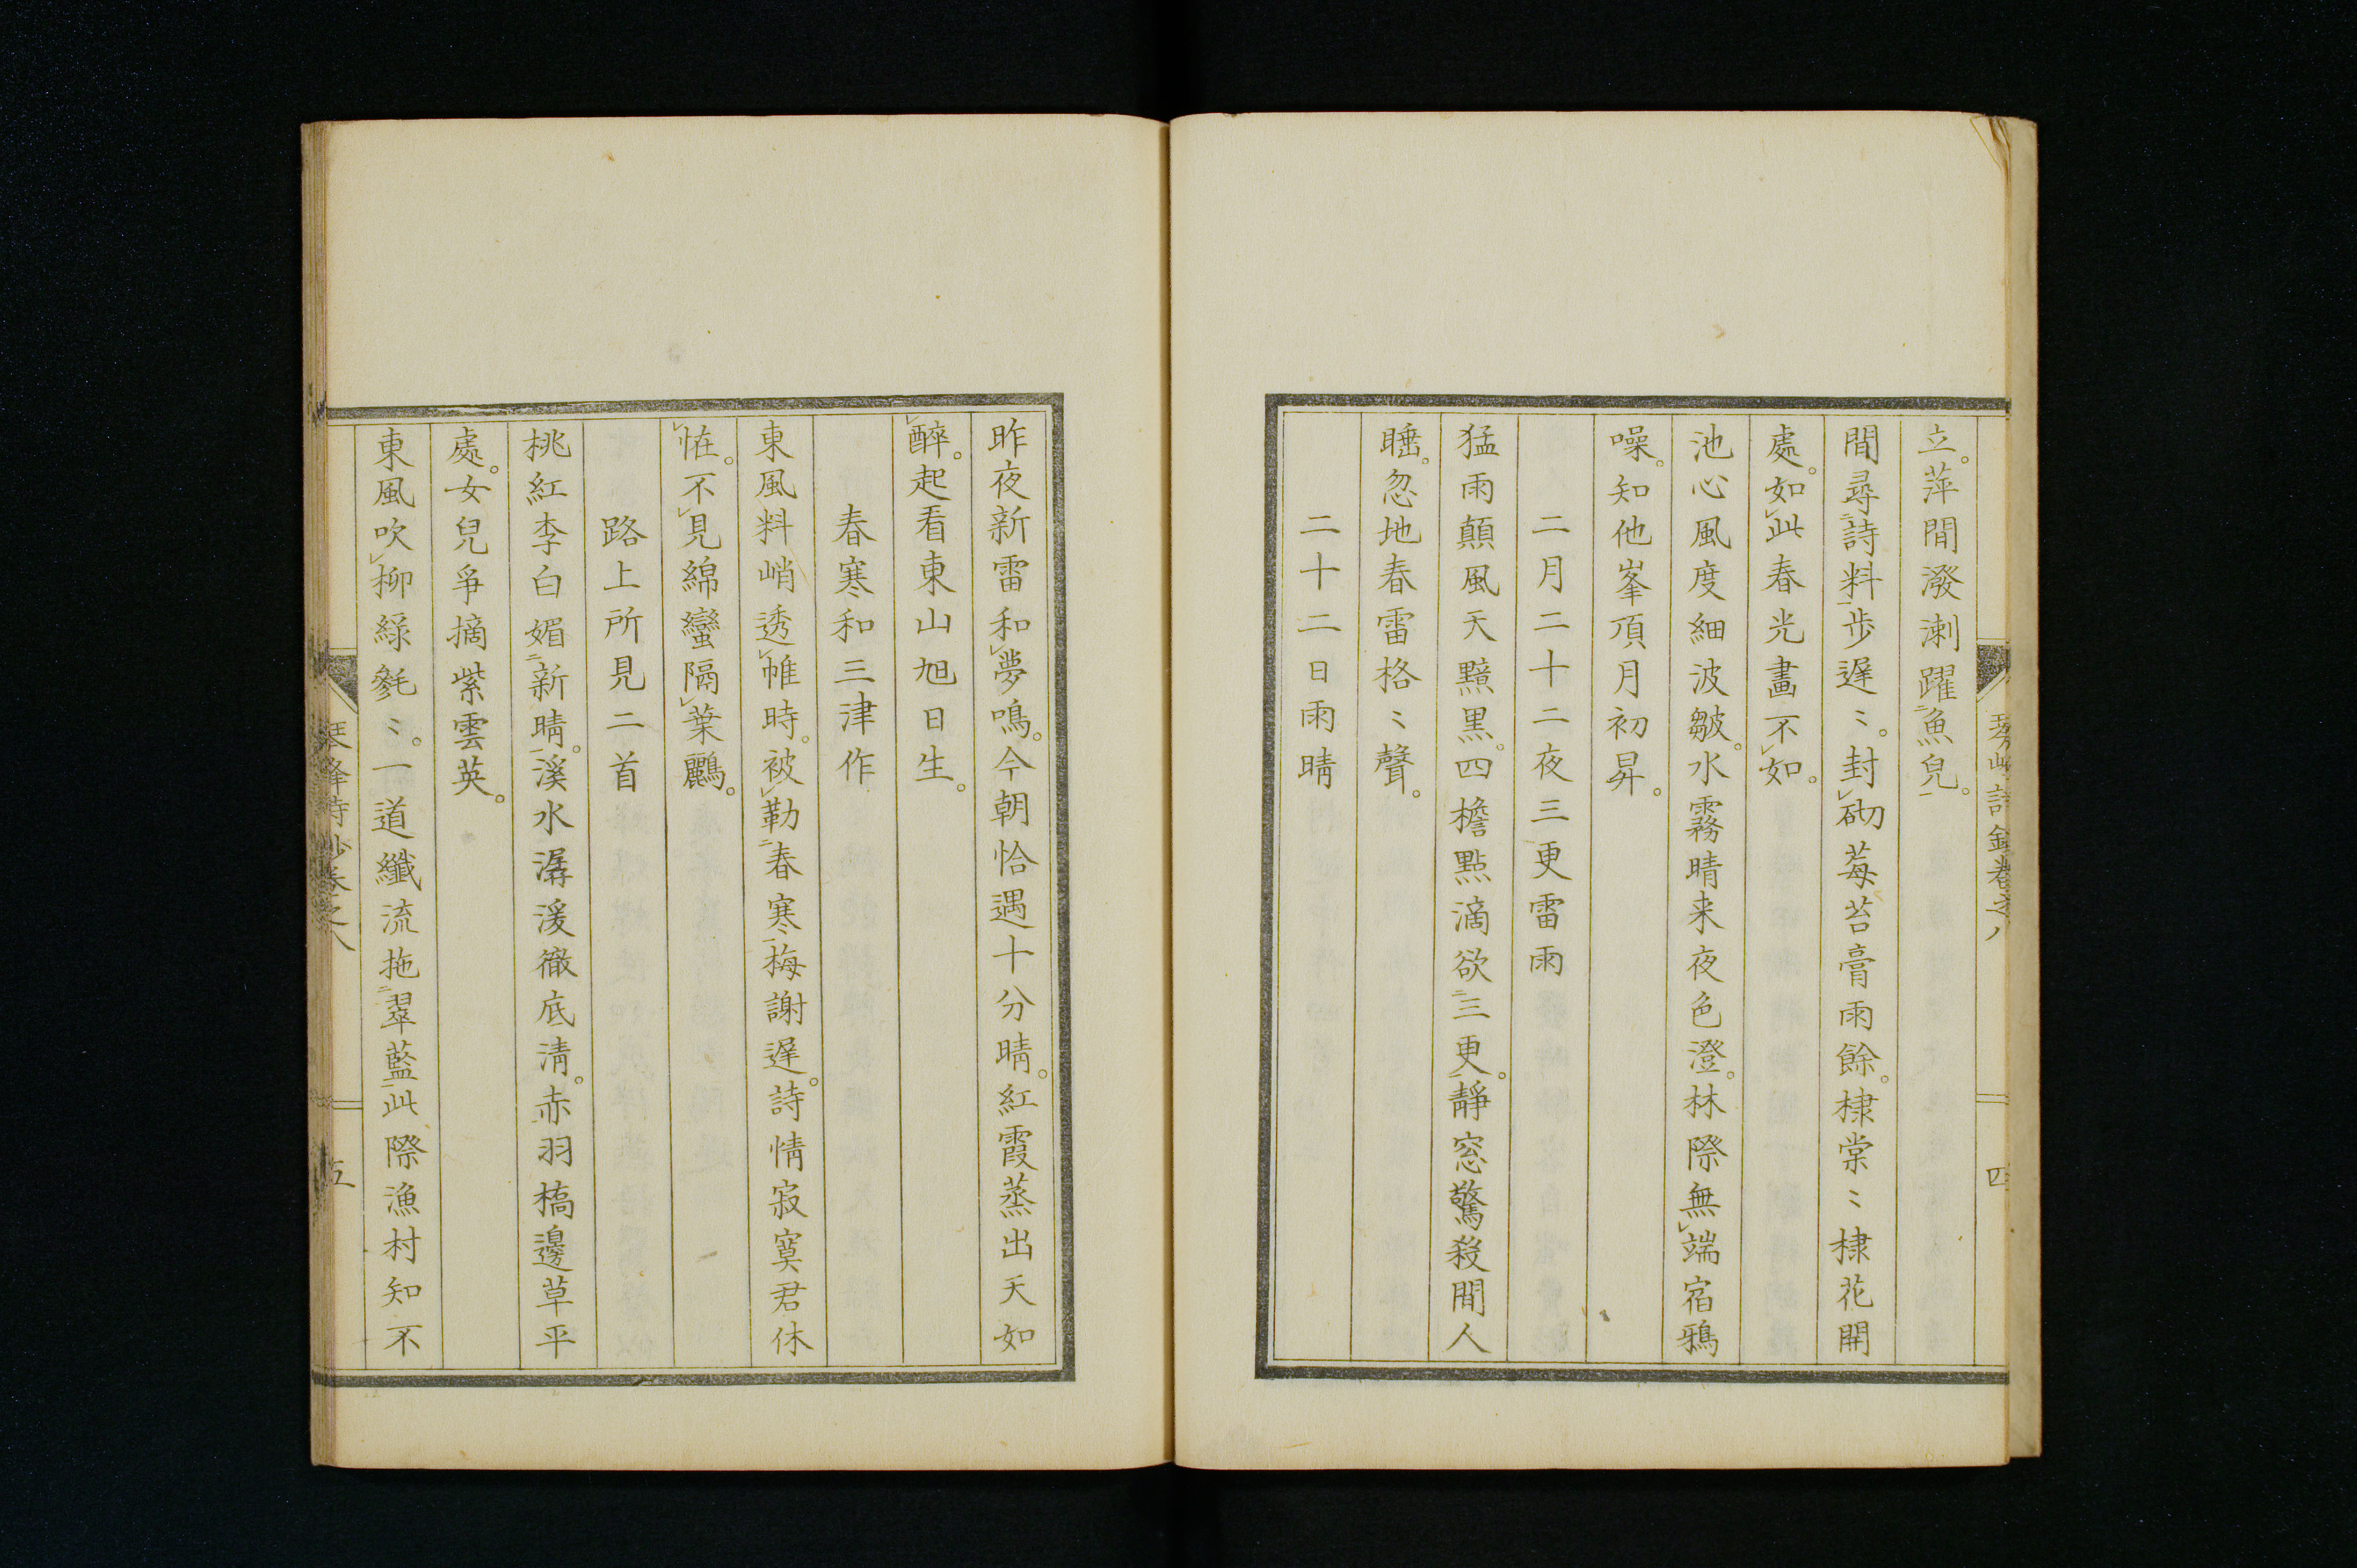 立。萍間潑溂躍魚兒。
間尋詩料步遲〻。封砌莓苔膏雨餘。棣棠〻棣花開
處。如此春光畫不如。
池心風度細波皺。水霧晴来夜色澄。林際無端宿鴉
噪。知他峯頂月初昇。
二月二十二夜三更雷雨
猛雨顛風天黯黒。四檐點滴欲三更。靜窓驚殺間人
睡。忽地春雷格〻聲。
二十二日雨晴
四
昨夜新雷和夢鳴。今朝恰遇十分晴。紅霞蒸出天如
醉。起看東山旭日生。
春寒和三津作
東風料峭透帷時。被勒春寒梅謝遅。詩情寂寞君休
恠。不見綿蠻隔葉鸝。
路上所見二首
桃紅李白媚新晴。溪水潺湲徹底淸。赤羽橋邊草平
處。女兒爭摘紫雲英。
東風吹柳綠毿〻。一道纖流拖翠藍此際漁村知不
五